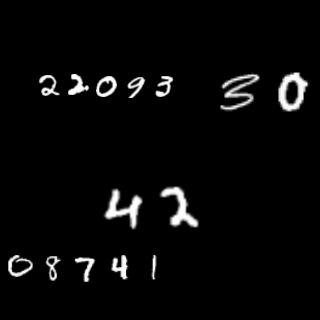 22093
30
42
08741